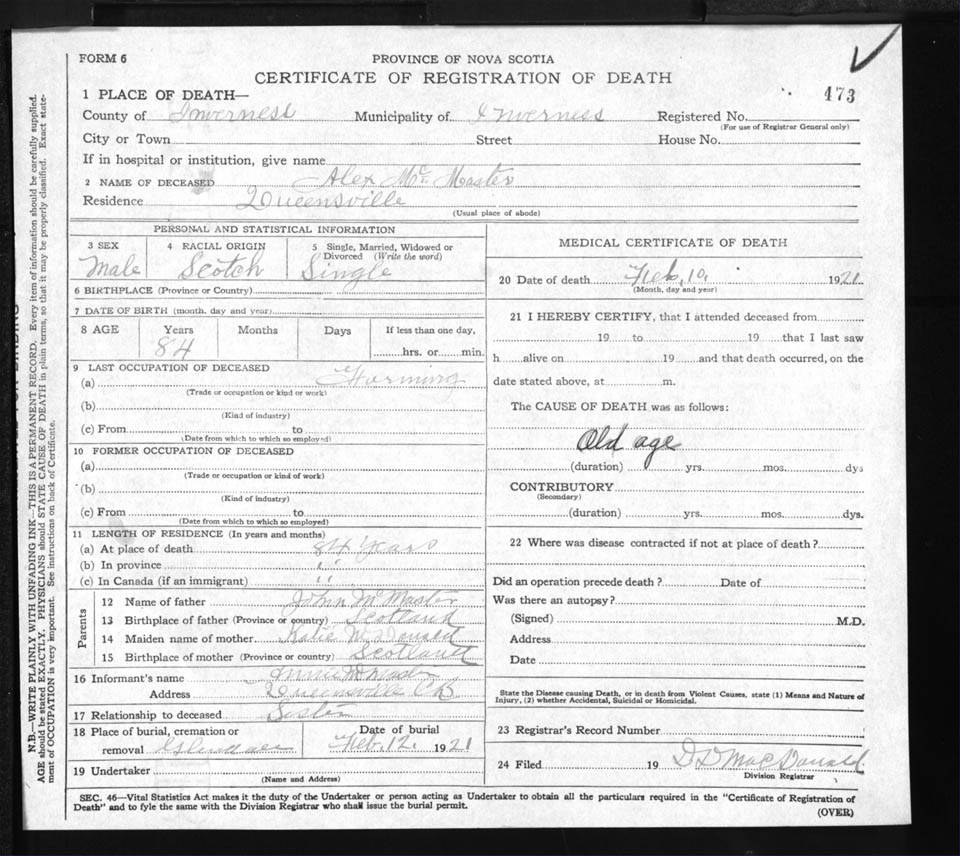 FORM 6
PROVINCE OF NOVA SCOTIA
CERTIFICATE OF REGISTRATION OF DEATH
473
1 PLACE OF DEATH—
County of Inverness Municipality of Inverness Registered No.
(For use of Registrar General only)
City or Town Street House No.
If in hospital or institution, give name
2 NAME OF DECEASED Alex McMaster
Residence Queensville
(Usual place of abode)
PERSONAL AND STATISTICAL INFORMATION
3 SEX 4 RACIAL ORIGIN 5 Single, Married, Widowed or Divorced (Write the word)
Male Scotch Single
6 BIRTHPLACE (Province or Country)
7 DATE OF BIRTH (month, day and year)
8 AGE Years Months Days If less than one day,
84 hrs. or min.
9 LAST OCCUPATION OF DECEASED
(a) Farming
(Trade or occupation or kind or work)
(b)
(Kind of industry)
(c) From to
(Date from which to which so employed)
10 FORMER OCCUPATION OF DECEASED
(a)
(Trade or occupation or kind of work)
(b)
(Kind of industry)
(c) From to
(Date from which to which so employed)
11 LENGTH OF RESIDENCE (In years and months)
(a) At place of death 84 years
(b) In province " 
(c) In Canada (if an immigrant) "
Parents
12 Name of father John McMaster
13 Birthplace of father (Province or country) Scotland
14 Maiden name of mother Katie McDonald
15 Birthplace of mother (Province or country) Scotland
16 Informant's name Annie McMaster
Address Queensville C.B.
17 Relationship to deceased Sister
18 Place of burial, cremation or Date of burial
removal Glendale Feb. 12. 1921
19 Undertaker
(Name and Address)
MEDICAL CERTIFICATE OF DEATH
20 Date of death Feb. 10, 1921.
(Month, day and year)
21 I HEREBY CERTIFY, that I attended deceased from
19 to 19 that I last saw
h alive on 19 and that death occurred, on the
date stated above, at m.
The CAUSE OF DEATH was as follows:
Old age
(duration) yrs. mos. dys
CONTRIBUTORY
(Secondary)
(duration) yrs. mos. dys.
22 Where was disease contracted if not at place of death?
Did an operation precede death? Date of
Was there an autopsy?
(Signed) M.D.
Address
Date
State the Disease causing Death, or in death from Violent Causes, state (1) Means and Nature of
Injury, (2) whether Accidental, Suicidal or Homicidal.
23 Registrar's Record Number
24 Filed 19 D D MacDonald.
Division Registrar
SEC. 46—Vital Statistics Act makes it the duty of the Undertaker or person acting as Undertaker to obtain all the particulars required in the "Certificate of Registration of
Death" and to fyle the same with the Division Registrar who shall issue the burial permit.
(OVER)
N.B.—WRITE PLAINLY WITH UNFADING INK—THIS IS A PERMANENT RECORD. Every item of information should be carefully supplied.
AGE should be stated EXACTLY. PHYSICIANS should STATE CAUSE OF DEATH in plain terms, so that it may be properly classified. Exact state-
ment of OCCUPATION is very important. See instructions on back of Certificate.